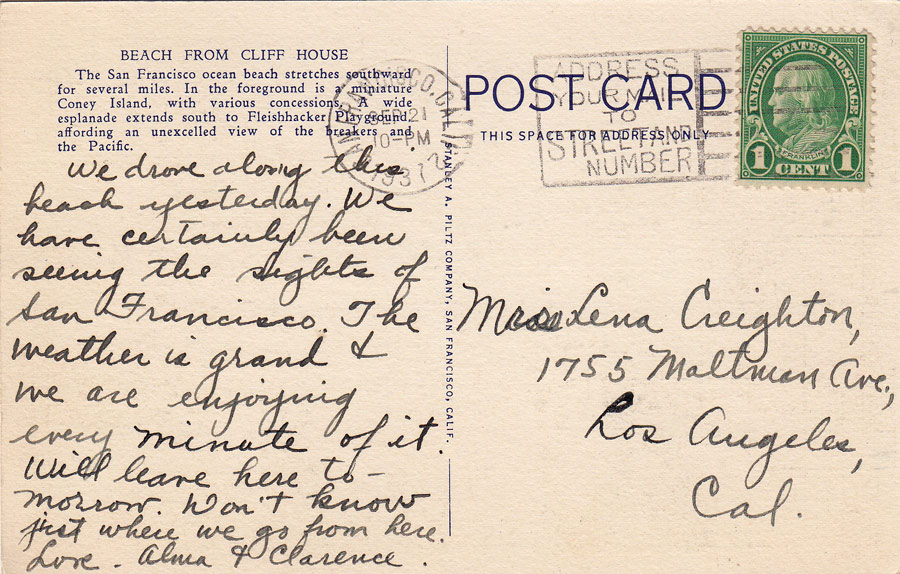 BEACH FROM CLIFF HOUSE
The San Francisco ocean beach stretches southward
for several miles. In the foreground is a miniature
Coney Island, with various concessions. A wide
esplanade extends south to Fleishhacker Playground,
affording an unexcelled view of the breakers and
the Pacific.
We drove along this
beach yesterday. We
have certainly been
seeing the sights of
San Francisco. The
weather is grand &
we are enjoying
every minute of it.
Will leave here to-
morrow. Won't know
just where we go from here.
Love - Alma & Clarence.
STANLEY A. PILTZ COMPANY, SAN FRANCISCO, CALIF.
SAN FRANCISCO, CALIF.
SEP 21
10-PM
1937
POST CARD
THIS SPACE FOR ADDRESS ONLY
ADDRESS
YOUR MAIL
TO
STREET AND
NUMBER
UNITED STATES POSTAGE
FRANKLIN
1 CENT 1
Lena Creighton,
1755 Maltman Ave.,
Los Angeles,
Cal.